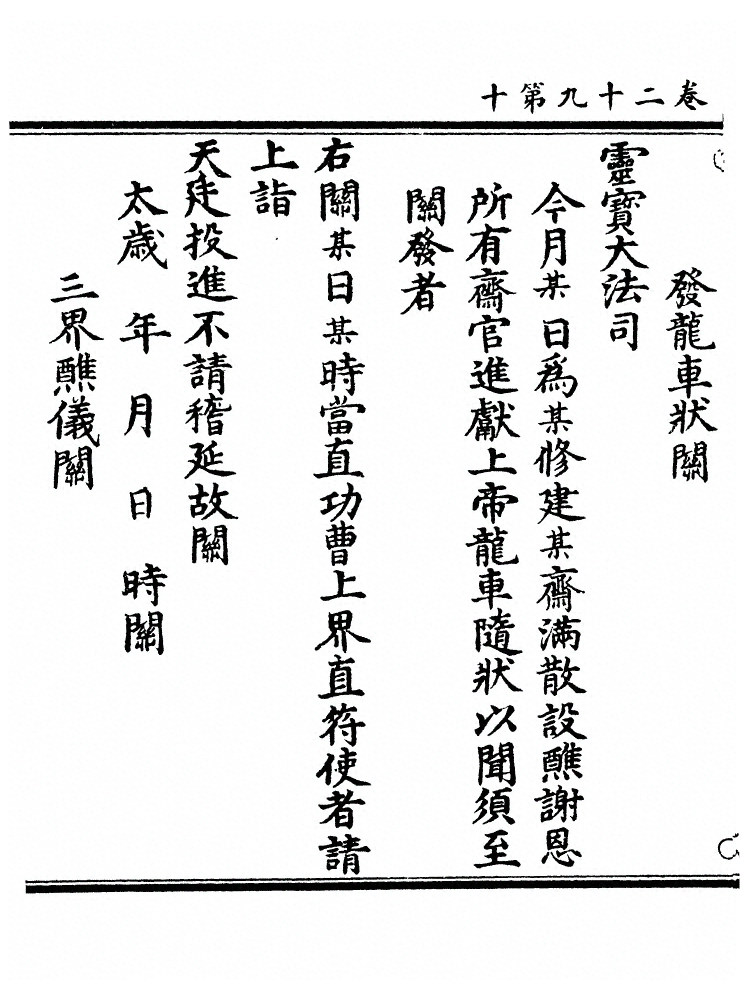 卷二十九第十
發龍車狀關
靈寶大法司
今月某日為某修建某齋滿散設醮謝恩
所有齋官進獻上帝龍車隨狀以聞須至
關發者
右關某日某時當直功曹上界直符使者請
上詣
天廷投進不請稽延故關
太歲年月日時關
三界醮儀關